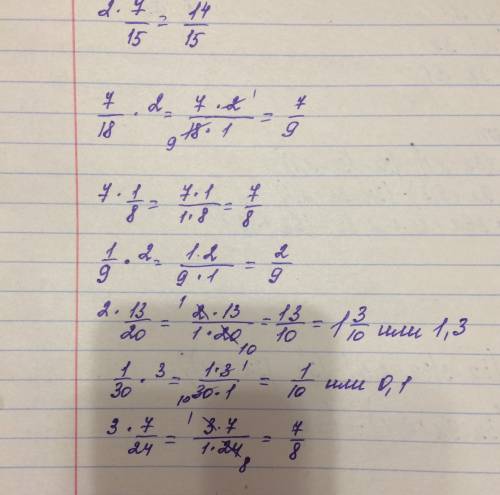 2 · 7/15 = 14/15
7/18 · 2 = 7 · 2 1/9 18 · 1 = 7/9
7 · 1/8 = 7 · 1/1 · 8 = 7/8
1/9 · 2 = 1 · 2/9 · 1 = 2/9
2 · 13/20 = 1 2 · 13/1 · 20 10 = 13/10 = 1 3/10 или 1,3
1/30 · 3 = 1 · 3 1/10 30 · 1 = 1/10 или 0,1
3 · 7/24 = 1 3 · 7/1 · 24 8 = 7/8